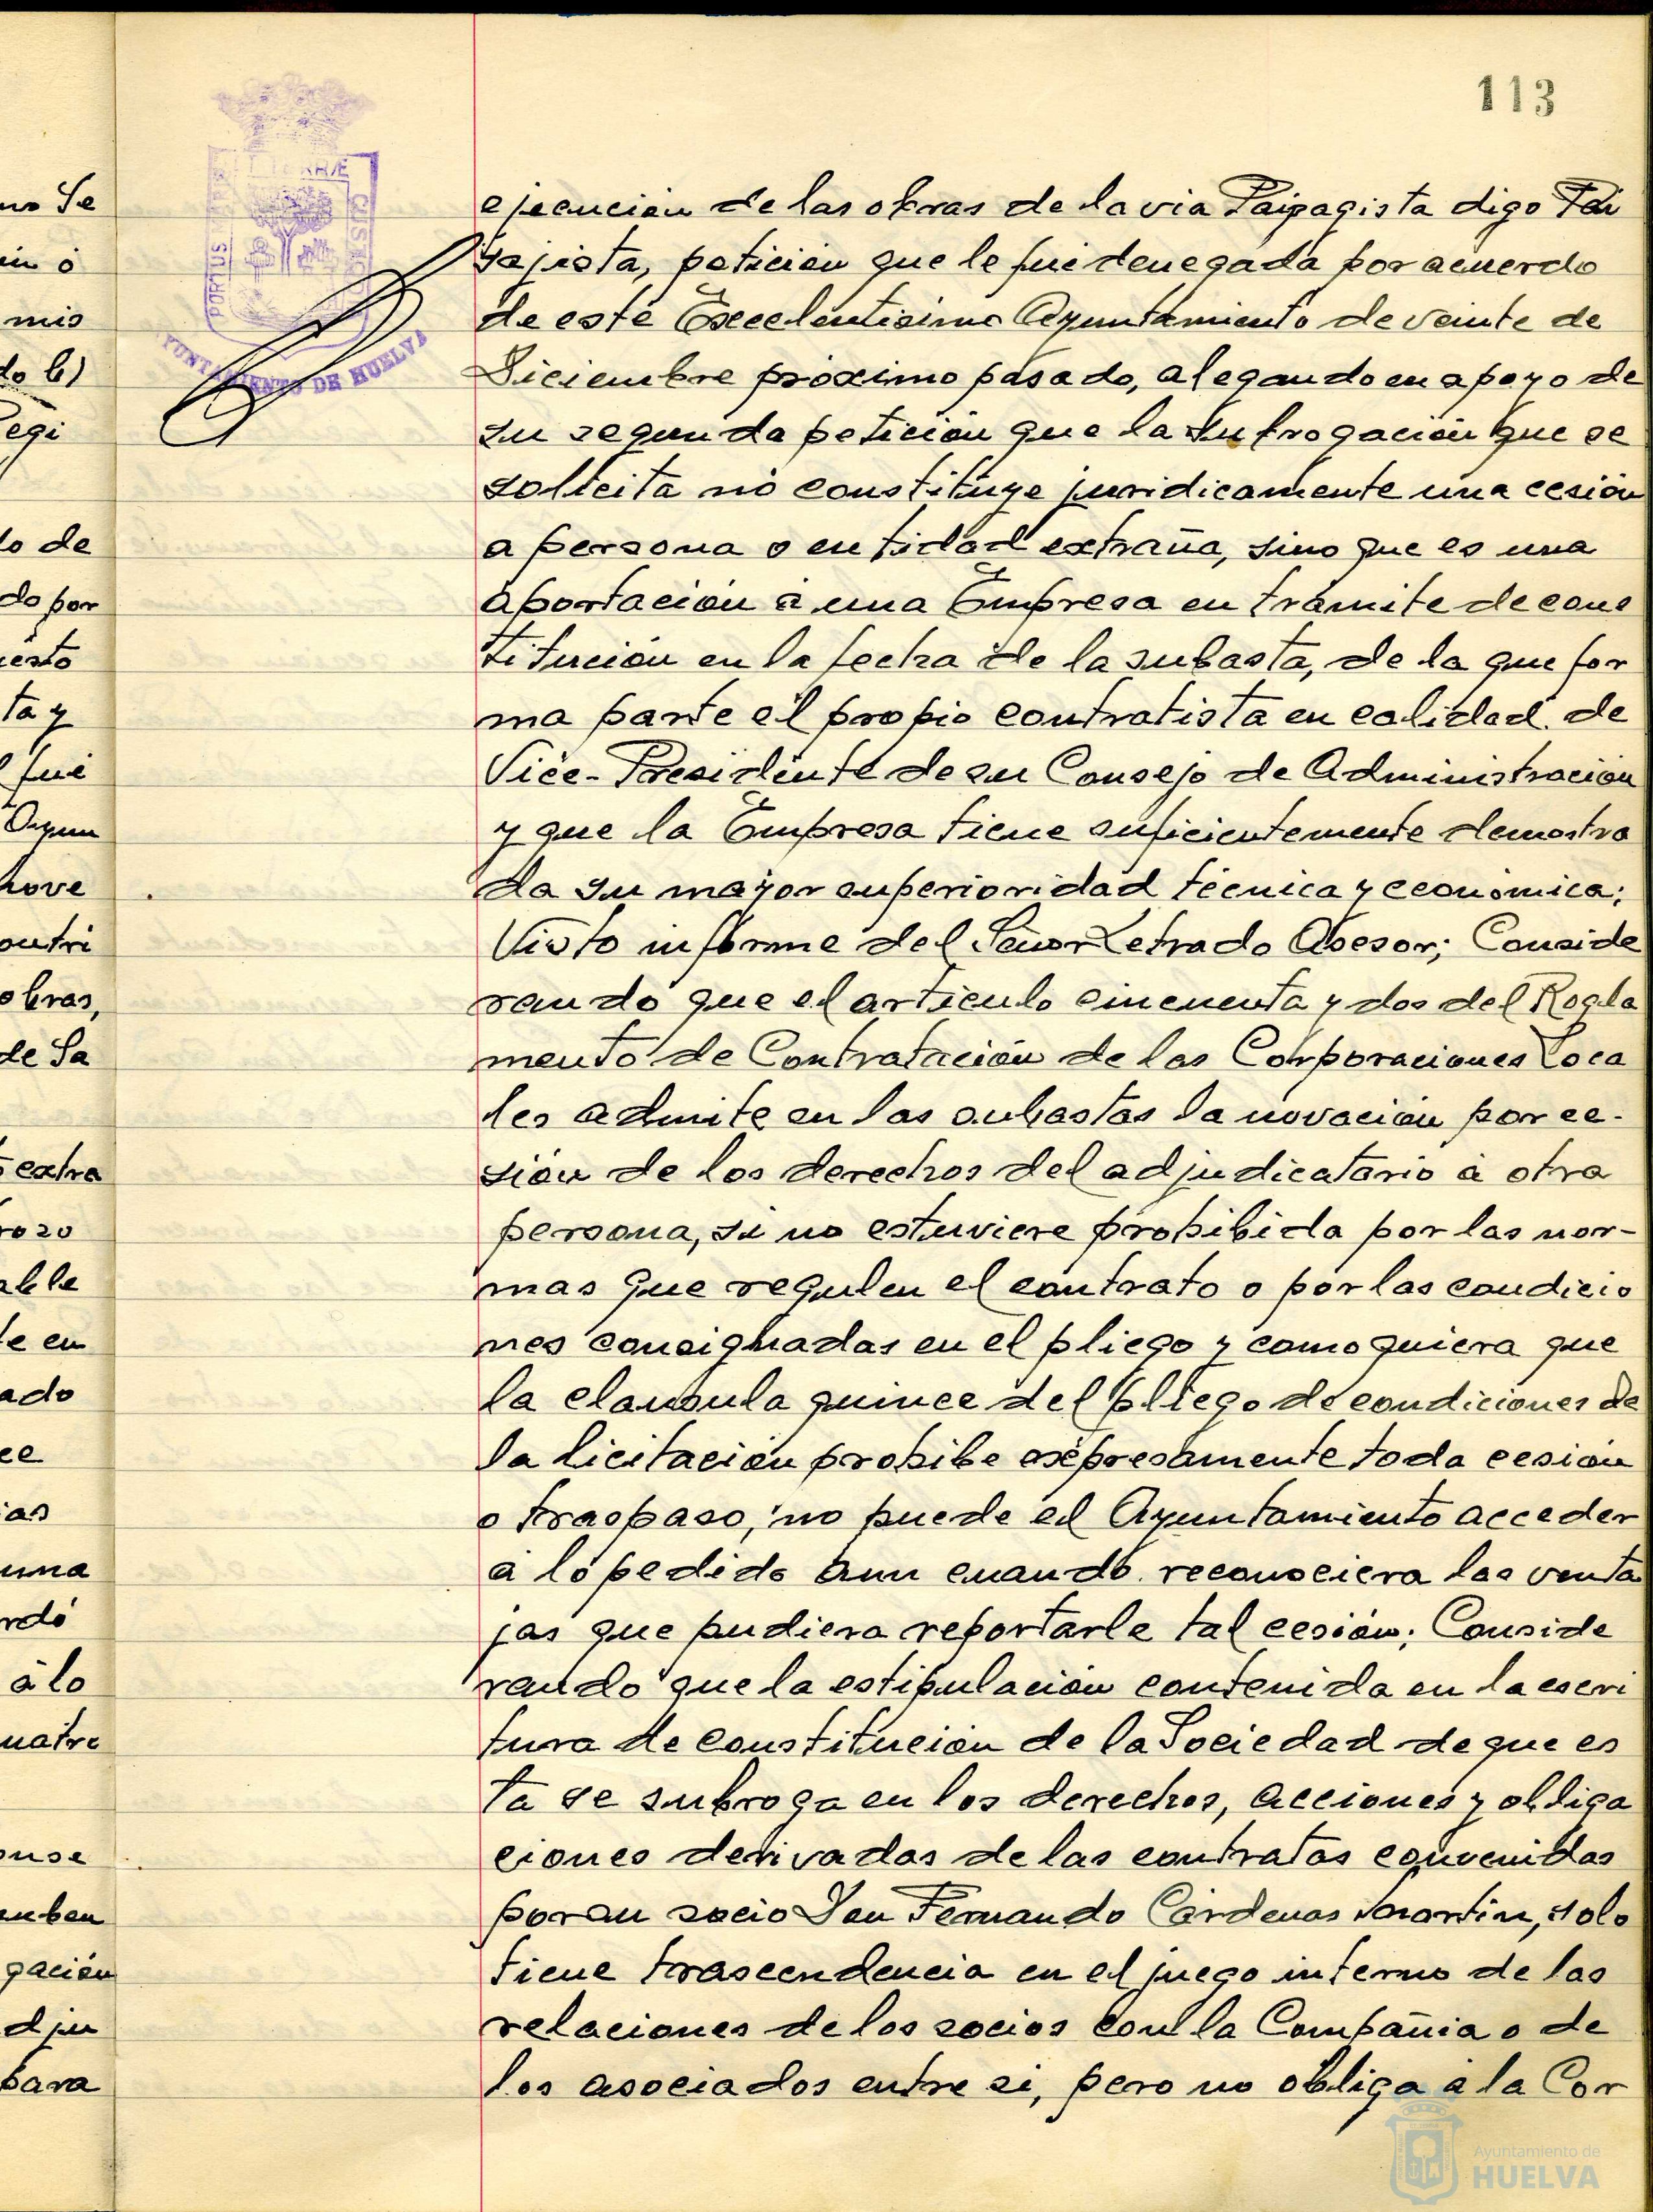 113
ejecución de las obras de la via Paipagista digo Pai
sajista, petición que le fué denegada por acuerdo
de este Excelentisimo Ayuntamiento de veinte de
Diciembre próximo pasado, alegando en apoyo de
su segunda petición que la subrogación que se
solicita no constituye juridicamente una cesión
a persona o entidad extraña, sino que es una
aportación á una Empresa en trámite de cons
titución en la fecha de la subasta, de la que for
ma parte el propio contratista en calidad de
Vice-Presidente de su Consejo de Administración
y que la Empresa tiene suficientemente demostra
da su mayor superioridad técnica y económica;
Visto informe del Señor Letrado Asesor; Conside
rando que el articulo cincuenta y dos del Regla
mento de Contratación de las Corporaciones Loca
les admite en las subastas la novación por ce-
sión de los derechos del adjudicatario á otra
persona, si no estuviere prohibida por las nor-
mas que regulen el contrato o por las condicio
nes consignadas en el pliego y como quiera que
la clausula quince del pliego de condiciones de
la licitación prohibe expresamente toda cesión
o traspaso, no puede el Ayuntamiento acceder
á lo pedido aun cuando reconociera las venta
jas que pudiera reportarle tal cesión; Conside
rando que la estipulación contenida en la escri
tura de constitución de la Sociedad de que es
ta se subroga en los derechos, acciones y obliga
ciones derivadas de las contratas convenidas
por su socio Don Fernando Cárdenas Martin, solo
tiene trascendencia en el juego interno de las
relaciones de los socios con la Compañia o de
los asociados entre si, pero no obliga á la Cor
PORTUS MARIS ET TERRÆ CUSTODIA
AYUNTAMIENTO DE HUELVA
no Se
in ó
mis
do b)
Regi
lo de
do por
uesto
ta y
fué
Ayun
nove
ontri
obras,
de Sa
extra
rozo
able
te en
ado
ce
ias
una
rdó
á lo
uatro
onse
suben
gación
dju
para
Ayuntamiento de
HUELVA